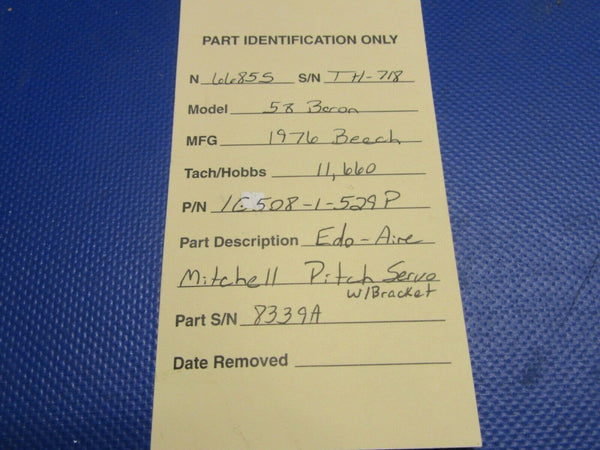 PART IDENTIFICATION ONLY
N 6685S S/N TH-718
Model 58 Baron
MFG 1976 Beech
Tach/Hobbs 11,660
P/N 1C508-1-529P
Part Description Edo-Aire
Mitchell Pitch Servo
w/Bracket
Part S/N 8339A
Date Removed